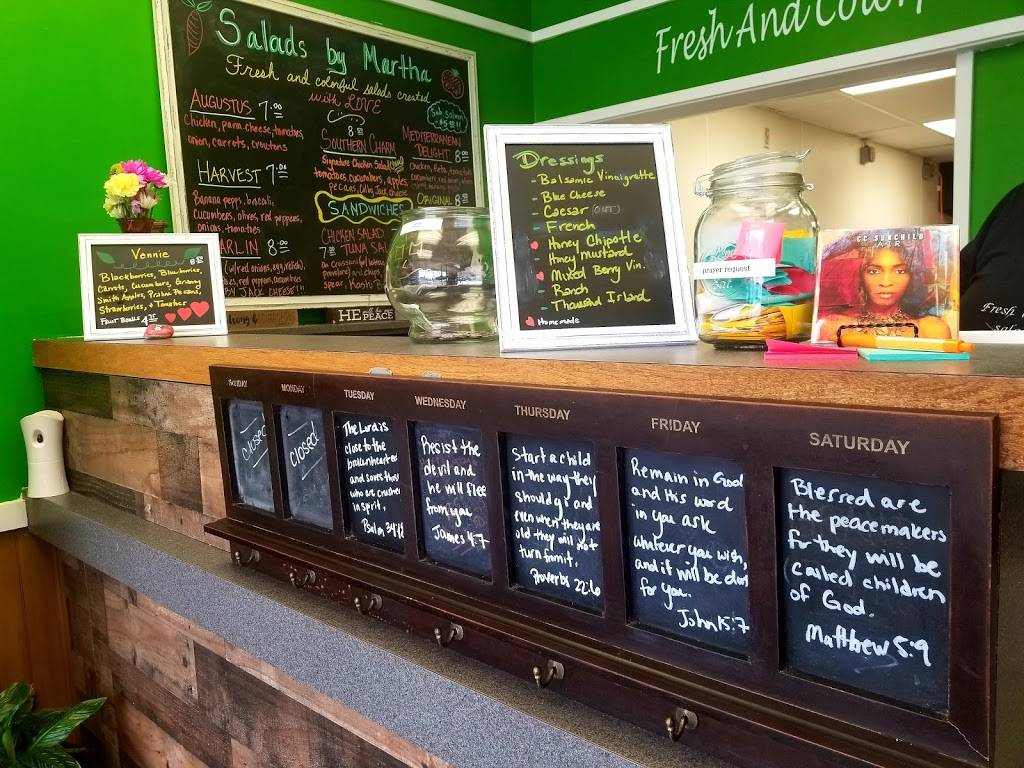 Fresh And
Salads by Martha
Fresh and colorful salads created
with LOVE
AUGUSTUS 7.00
chicken, parm. cheese, tomatoes,
onion, carrots, croutons
HARVEST 7.00
Banana peps, broccoli,
cucumbers, olives, red peppers,
onions, tomatoes
8.00
red onions
red peppers, cucumbers
JACK CHEESE!!!
8.00
SOUTHERN CHARM
Signature Chicken Salad
tomatoes, cucumbers, apples,
pecans, Colby Jack cheese
SANDWICHES
CHICKEN SALAD
7.00 TUNA SALAD
on Croissant
and chips
MEDITERRANEAN
DELIGHT 8.00
ORIGINAL 8.00
Vennie
Blackberries, Blueberries,
Carrots, Cucumbers, Granny
Smith Apples, Pecans
Strawberries, & Tomatoes
FRUIT BOWLS
HE
PEACE
Dressings
- Balsamic Vinaigrette
- Blue Cheese
- Caesar (OUT)
- French
Honey Chipotle
Honey Mustard
Mixed Berry Vin.
- Ranch
- Thousand Island
Homemade
prayer request
CC SUNCHILD
AIR
Fresh
SUNDAY
closed
MONDAY
closed
TUESDAY
The Lord is
close to the
brokenhearted
and saves those
who are crushed
in spirit.
Psalm 34:18
WEDNESDAY
Resist the
devil and
he will flee
from you
James 4:7
THURSDAY
Start a child
in the way they
should go and
even when they are
old they will not
turn from it.
Proverbs 22:6
FRIDAY
Remain in God
and His word
in you ask
whatever you wish,
and it will be done
for you.
John 15:7
SATURDAY
Blessed are
the peacemakers
for they will be
called children
of God.
Matthew 5:9